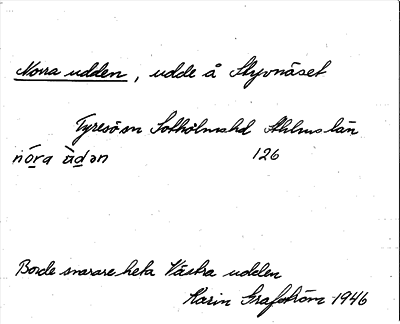 Norra udden, udde å Styvnäset
Tyresö sn Sotholms hd Sthlms län
nór̥a ùdən 126
Borde snarare heta Västra udden
Karin Grafström 1946